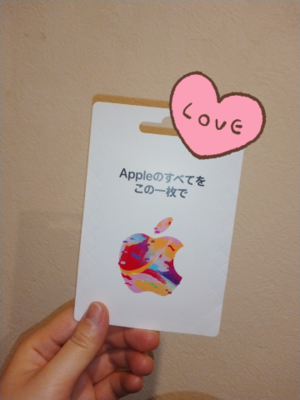 LOVE
Appleのすべてを
この一枚で